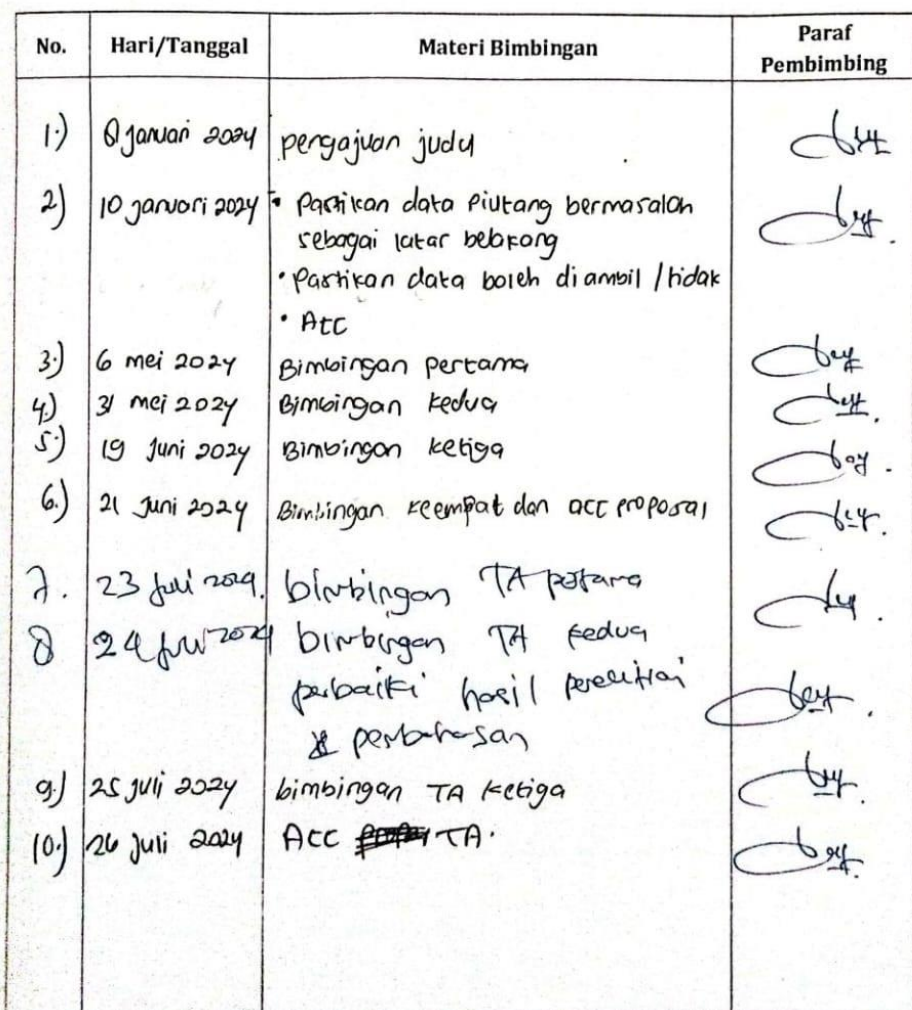 No. Hari/Tanggal Materi Bimbingan Paraf Pembimbing
1.) 8 Januari 2024 pengajuan judul
2) 10 januari 2024 • Pastikan data Piutang bermasalah
sebagai latar belakang
• Pastikan data boleh di ambil / tidak
• Acc
3.) 6 mei 2024 Bimbingan pertama
4.) 31 mei 2024 Bimbingan kedua
5.) 19 Juni 2024 Bimbingan ketiga
6.) 21 Juni 2024 Bimbingan keempat dan acc proposal
7. 23 Juli 2024. bimbingan TA pertama
8 24 Juli 2024 bimbingan TA kedua
perbaiki hasil penelitian
& pembahasan
9.) 25 Juli 2024 bimbingan TA ketiga
10.) 26 Juli 2024 Acc TA.